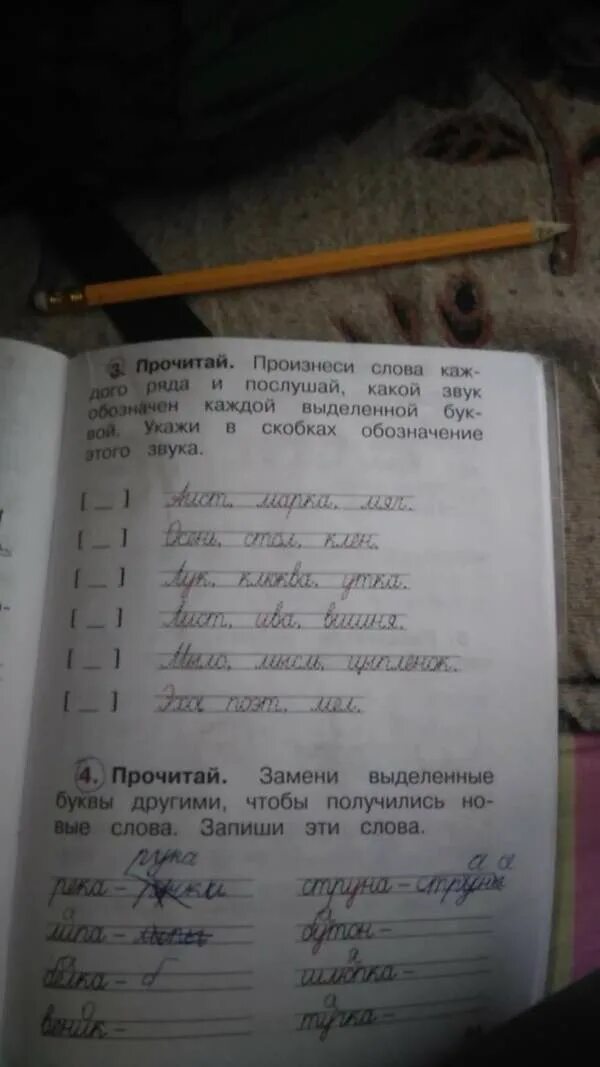 3. Прочитай. Произнеси слова каж-
дого ряда и послушай, какой звук
обозначен каждой выделенной бук-
вой. Укажи в скобках обозначение
этого звука.
[ _ ] Аист, марка, мяч.
[ _ ] Осень, стол, клен.
[ _ ] Лук, клюква, утка.
[ _ ] Лист, ива, вишня.
[ _ ] Мыло, мысль, цыпленок.
[ _ ] Эхо, поэт, мел.
4. Прочитай. Замени выделенные
буквы другими, чтобы получились но-
вые слова. Запиши эти слова.
рука а а
река – струна – струны
липа – бутон –
белка – б шлюпка –
веник – тучка –